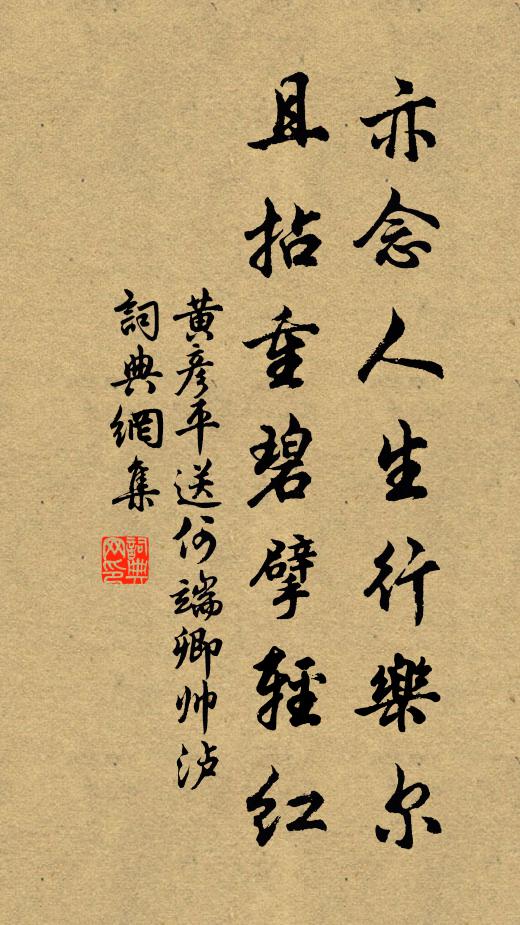 亦念人生行樂尔
且拈重碧擘輕红
黄彦平送何端卿帅泸
詞典網集
詞典
网印